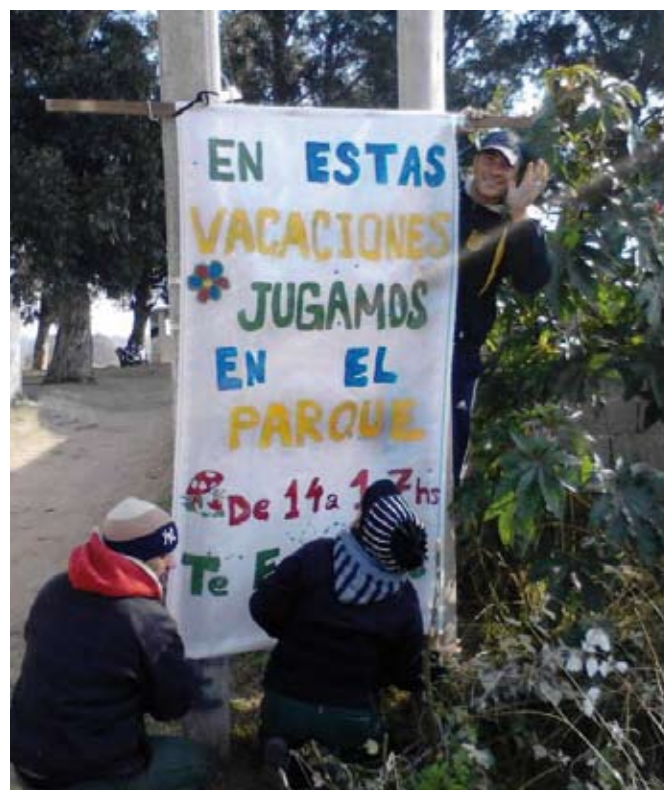 EN ESTAS
VACACIONES
JUGAMOS
EN EL
PARQUE
De 14 a 17 hs
Te